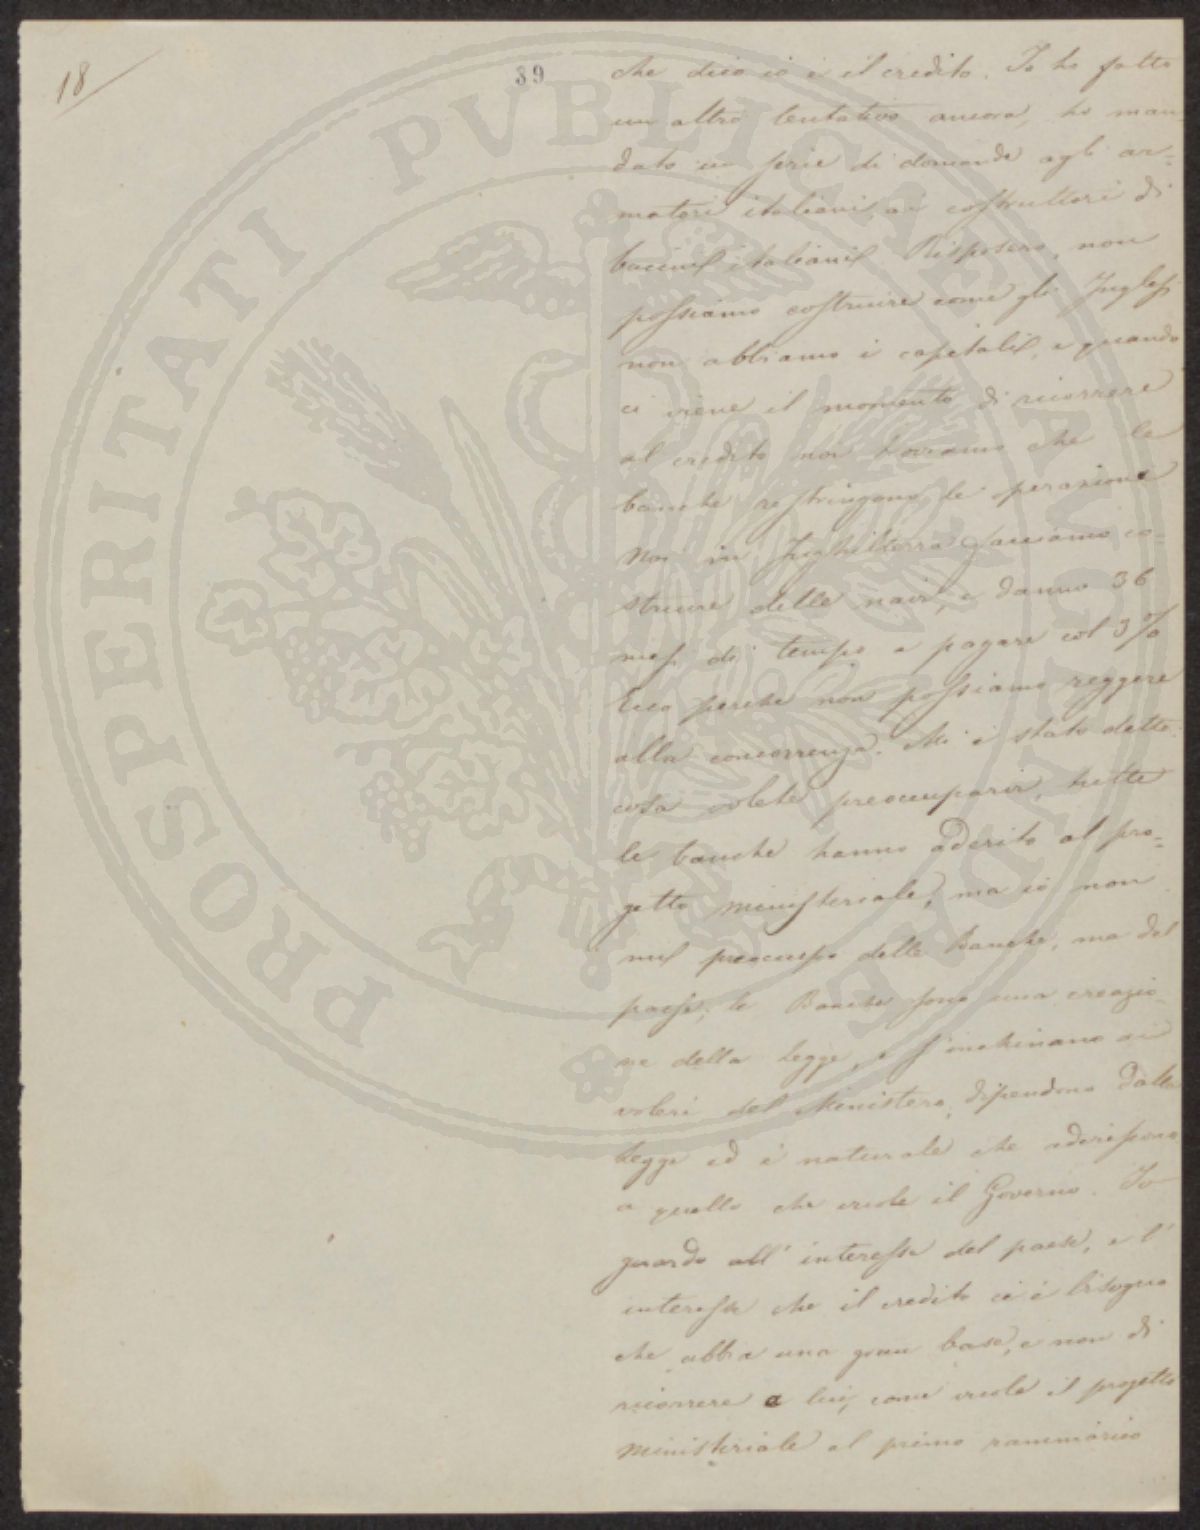 18
89
che dico io è il credito. Io ho fatto
un altro tentativo ancora, ho man
dato un serie di domande agli ar=
matori italiani, ai costruttori di
bacini italiani. Risposero, non
possiamo costruire come gli Inglesi
non abbiamo i capitali, e quando
ci viene il momento di ricorrere
al credito noi troviamo che le
banche restringono le operazione
Noi in Inghilterra facciamo co=
struire delle navi, e danno 36
mesi di tempo a pagare col 3%
Ecco perche non possiamo reggere
alla concorrenza. Mi è stato detto:
cosa volete preoccuparvi, tutte
le banche hanno aderito al pro=
getto ministeriale, ma io non
mi preoccupo delle Banche, ma del
paese, le Banche sono una creazio=
ne della legge, e s'inchinano ai
voleri del Ministero, dipendono dalla
legge ed è naturale che aderiscono
a quello che vuole il Governo. Io
guardo all' interesse del paese, e l'
interesse che il credito ci è bisogno
che abbia una gran base, e non di
ricorrere a lui, come vuole il progetto
ministeriale al primo rammarico
PROSPERITATI PVBLICAE AVGENDAE